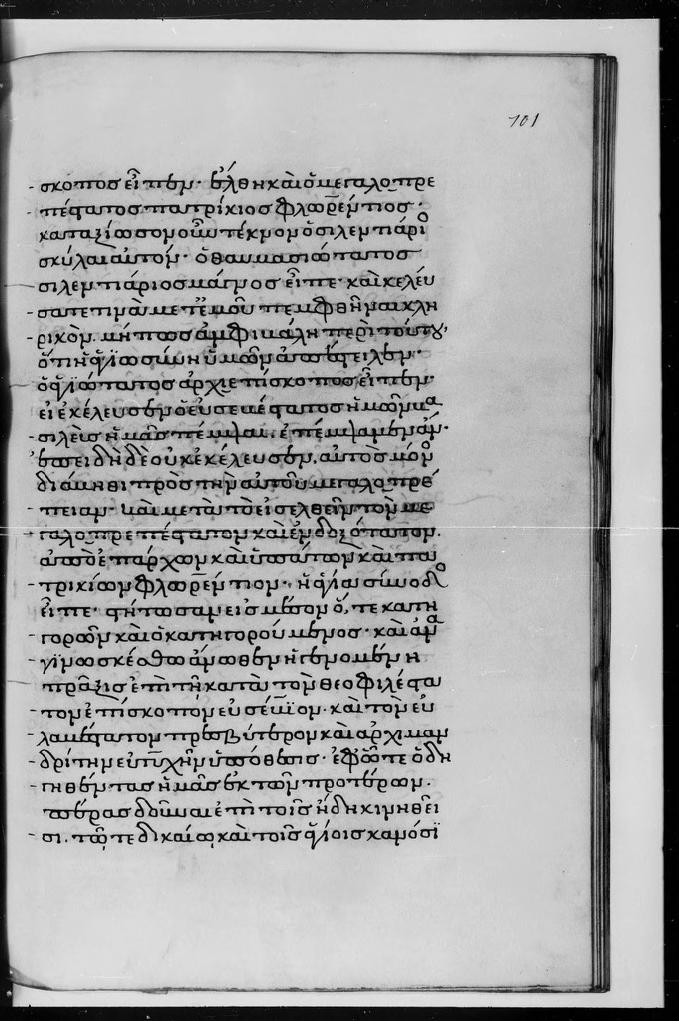 101
σκοπος εἶπεν· ἔλθη καὶ ὁ μεγαλοπρε
πέστατος πατρίκιος φλωρέντιος·
καταξίωσον οὖν τέκνον ὁ σιλεντιάριο
σκύλαι αὐτόν· ὁ θαυμασιώτατος
σιλεντιάριος μάγνος εἶπε· καὶ κελεύ
σατε τινὰ μετ' ἐμοῦ πεμφθῆναι κλη
ρικόν. μήπως ἀμφιβάλη περὶ τούτου,
ὅτι ἡ ἁγία σύνοδος ὑμῶν ἀπέστειλεν·
ὁ ἁγιώτατος ἀρχιεπίσκοπος εἶπεν·
εἰ ἐκέλευσεν ὁ εὐσεβέστατος ἡμῶν βα
σιλεὺς ἡμᾶς πέμψαι. ἐπέμψαμεν ἄν·
ἐπειδὴ δὲ οὐ κεκέλευσεν, αὐτὸς μόνο
διάβηθι πρὸς τὴν αὐτοῦ μεγαλοπρέ
πειαν· καὶ μετὰ τὸ εἰσελθεῖν τὸν με
γαλοπρεπέστατον καὶ ἐνδοξότατον.
ἀπὸ ἐπάρχων καὶ ὑπάτων καὶ πα
τρικίων φλωρέντιον. ἡ ἁγία σύνοδο
εἶπε· στήτωσαν εἰς μέσον ὅ, τε κατη
γορῶν καὶ ὁ κατηγορούμενος· καὶ ἀνα
γϊνωσκέσθω ἄνωθεν ἡ γενομένη
πρᾶξις ἐπὶ τῆ κατὰ τὸν θεοφιλέστα
τον ἐπίσκοπον εὐσέβϊον. καὶ τὸν εὐ
λαβέστατον πρεσβύτερον καὶ ἀρχιμαν
δρίτην εὐτυχῆν ὑποθέσει· ἐφ' ᾧ τε ὁδη
γηθέντας ἡμᾶς ἐκ τῶν προτέρων.
πέρας δοῦναι ἐπὶ τοῖς ἤδη κινηθεῖ
σι. τῶ τε δικαίω καὶ τοῖς ἁγίοις κανόσϊ